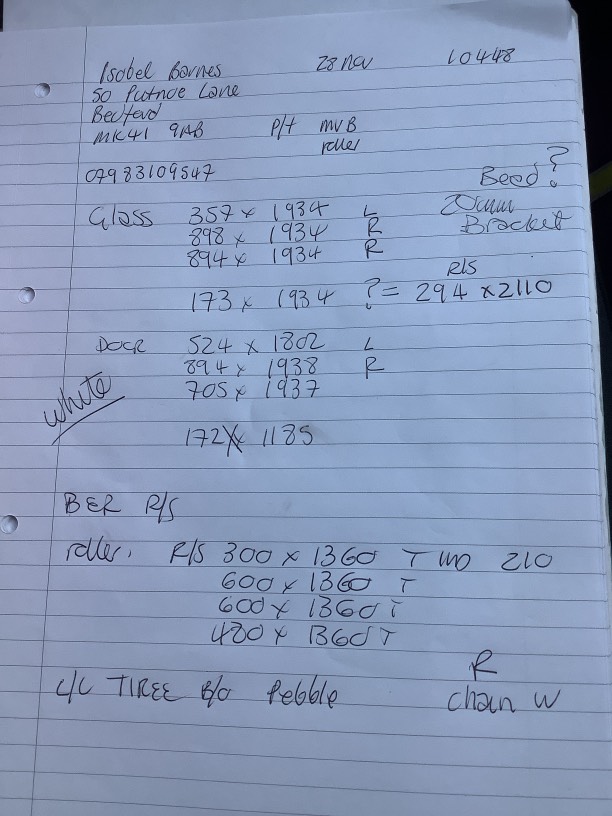 Isobel Barnes 28 Nov 10448
50 Putnoe Lane
Bedford
MK41 9AB P/t MVB
roller
07983109547
Bead?
Glass 357 x 1934 L 20mm
898 x 1934 R Bracket
894 x 1934 R
R/S
173 x 1934 ? = 294 x 2110
DOOR 524 x 1802 L
894 x 1938 R
705 x 1937
white
172 x 1185
BER R/S
roller. R/S 300 x 1360 T 210
600 x 1360 T
600 x 1360 T
480 x 1360 T
R
C/C TIREE B/O Pebble Chain W